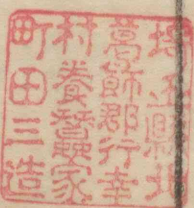 埼玉縣北
葛飾郡行幸
村養蠶家
町田三造